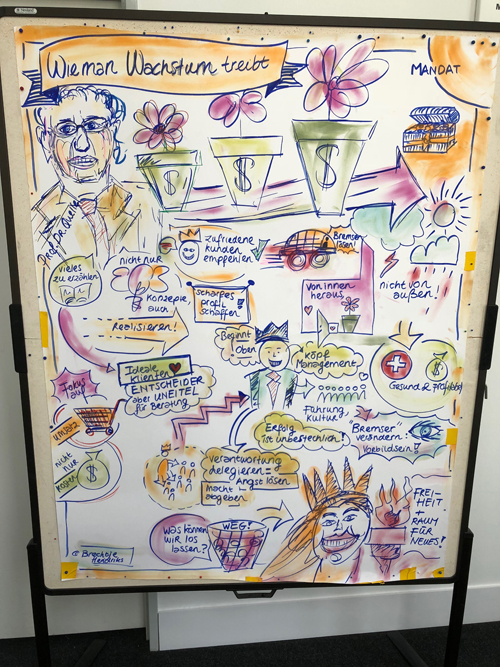 Wie man Wachstum treibt
MANDAT
$
$
$
Prof. Dr. Quelle
vieles
zu erzählen
nicht nur
Konzepte,
auch
realisieren!
zufriedene
Kunden
empfehlen
Bremsen
lösen!
scharfes
Profil
schaffen!
von innen
heraus
nicht von
außen!
Beginnt
oben
Kopf
Management
Führung,
Kultur
Gesund &
Ideale
Klienten
ENTSCHEIDER
aber UNEITEL
für Beratung
Fokus
auf
UMSATZ
nicht
nur
Kosten
$
Erfolg
ist unbestechlich!
"Bremser"
verändern:
Vorbild sein!
Verantwortung
delegieren =
Angst lösen
Macht
abgeben
Was können
wir los
lassen?
WEG!
FREI-
HEIT
+
RAUM
FÜR
NEUES!
Hendriks